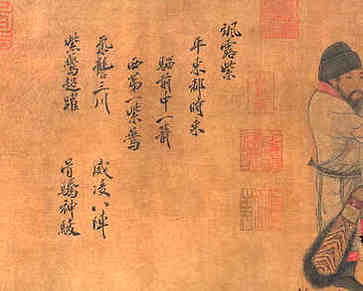 颯露紫
西第一紫鷰
騮前中一箭
平東都時乘
紫鷰超躍 骨騰神駿
氣讋三川 威凌八陣